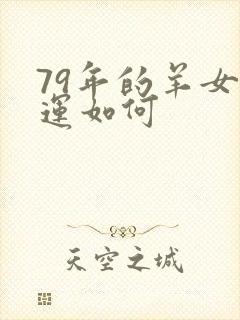 79年的羊女
運如何
天空之城